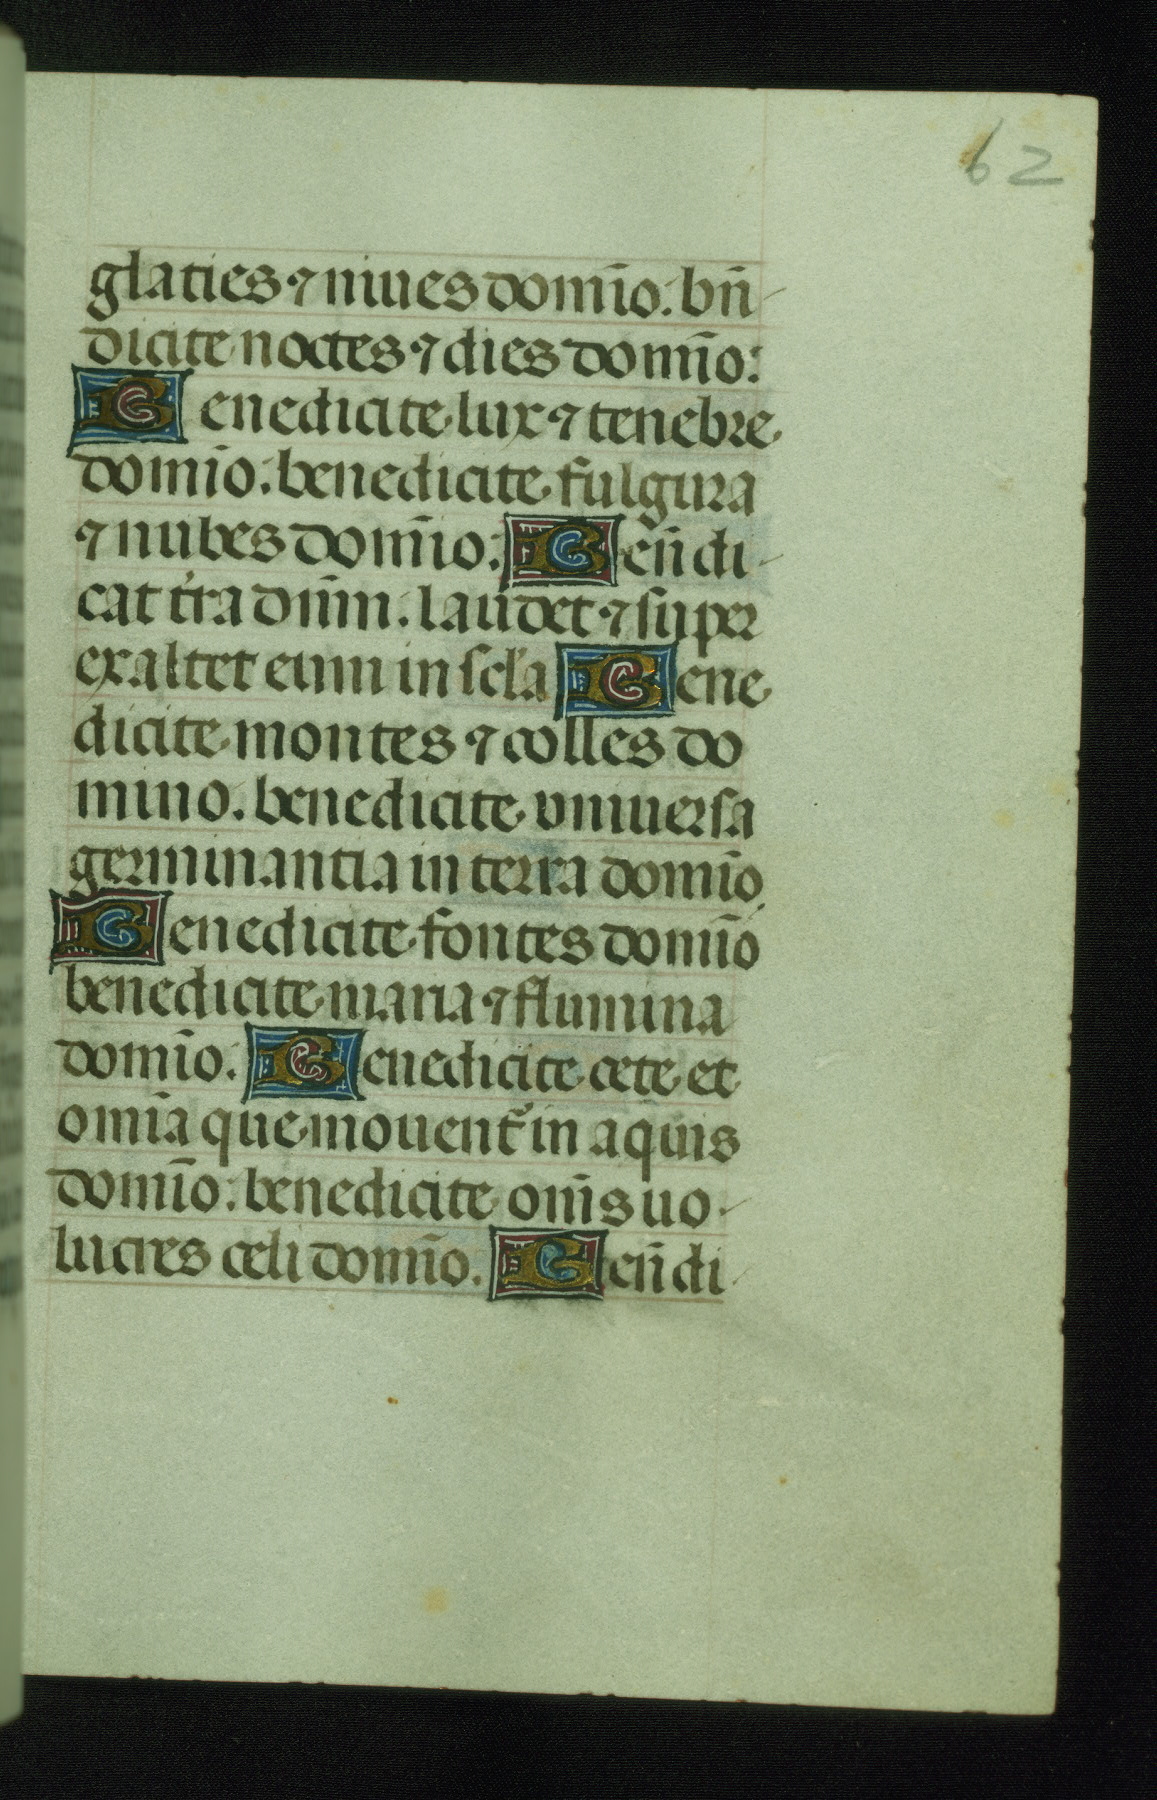 62
glacies ⁊ niues domīo. bn̄
dicite noctes ⁊ dies domīo:
Benedicite lux ⁊ tenebre
domīo: benedicite fulgura
⁊ nubes domīo: Ben̄di
cat t̄ra dn̄m. laudet ⁊ super
exaltet eum in scl̄a Bene
dicite montes ⁊ colles do
mino. benedicite vniuersa
germinantia in terra domīo.
Benedicite fontes domīo
benedicite maria ⁊ flumina
domīo: Benedicite cete et
omīa que mouent᷑ in aquis
domīo: benedicite om̄s uo
lucres celi domīo. Ben̄di